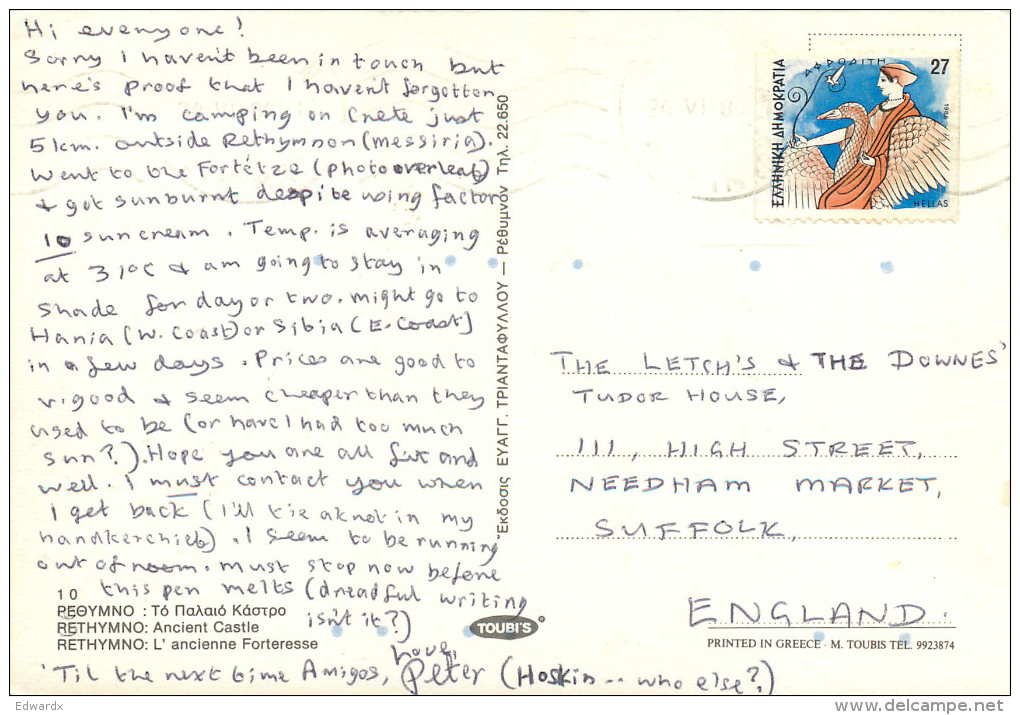 Hi everyone!
Sorry I haven't been in touch but
here's proof that I haven't forgotten
you. I'm camping on Crete just
5km. outside Rethymnon (messiria).
Went to the Fortétza (photo overleaf)
& got sunburnt despite using factor
10 suncream. Temp. is averaging
at 31°C & am going to stay in
shade for day or two. might go to
Hania (W. Coast) or Sibia (E. Coast]
in a few days. Prices are good to
v. good & seem cheaper than they
used to be (or have I had too much
sun?). Hope you are all fit and
well. I must contact you when
I get back (I'll tie a knot in my
handkerchief). I seem to be running
out of room. Must stop now before
this pen melts (dreadful writing
isn't it?)
'Til the next time Amigos, love, Peter (Hoskin -- who else?)
10
ΡΕΘΥΜΝΟ : Τό Παλαιό Κάστρο
RETHYMNO: Ancient Castle
RETHYMNO: L' ancienne Forteresse
Ἐκδοσις ΕΥΑΓΓ. ΤΡΙΑΝΤΑΦΥΛΛΟΥ — Ρέθυμνον Τηλ. 22.650
TOUBI'S
ΕΛΛΗΝΙΚΗ ΔΗΜΟΚΡΑΤΙΑ
ΑΦΡΟΔΙΤΗ
27
1986
HELLAS
8 IV
THE LETCH'S & THE DOWNES'
TUDOR HOUSE,
111, HIGH STREET,
NEEDHAM MARKET,
SUFFOLK,
ENGLAND.
PRINTED IN GREECE - M. TOUBIS TEL. 9923874
Edwardx
www.delcampe.net